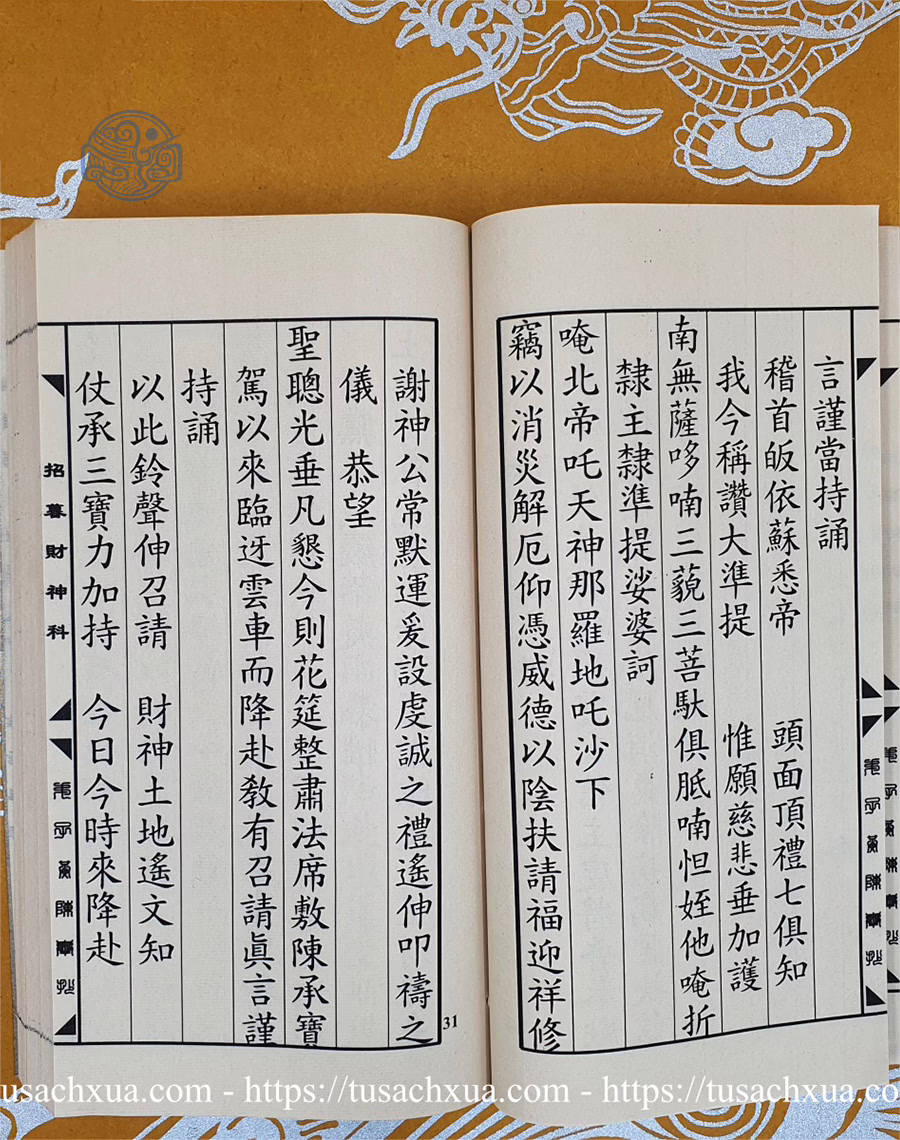 言謹當持誦
稽首皈依蘇悉帝 頭面頂禮七俱知
我今稱讚大準提 惟願慈悲垂加護
南無薩哆喃三藐三菩馱俱胝喃怛姪他唵折
隸主隸準提娑婆訶
唵北帝吒天神那羅地吒沙下
竊以消災解厄仰憑威德以陰扶請福迎祥修
謝神公常默運爰設虔誠之禮遙伸叩禱之
儀 恭望
聖聰光垂凡懇今則花筵整肅法席敷陳承寶
駕以來臨迓雲車而降赴教有召請眞言謹
持誦
以此鈴聲伸召請 財神土地遙文知
仗承三寶力加持 今日今時來降赴
招暮財神科
31
usachxua.com - https://tusachxua.com - https://tusachxua.co